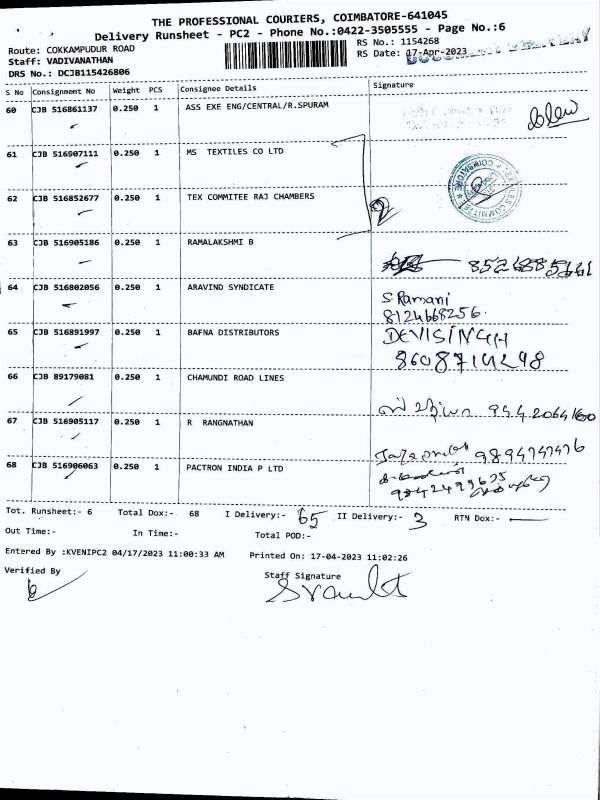 THE PROFESSIONAL COURIERS, COIMBATORE-641045
Delivery Runsheet - PC2 - Phone No.:0422-3505555 - Page No.:6
Route: COKKAMPUDUR ROAD
RS No.: 1154268
Staff: VADIVANATHAN
RS Date: 17-Apr-2023
DRS No.: DCJB115426806
S No Consignment No Weight PCS Consignee Details Signature
60 CJB 516861137 0.250 1 ASS EXE ENG/CENTRAL/R.SPURAM
61 CJB 516907111 0.250 1 MS TEXTILES CO LTD
62 CJB 516852677 0.250 1 TEX COMMITEE RAJ CHAMBERS
TEXTILES COMMITTEE COIMBATORE
63 CJB 516905186 0.250 1 RAMALAKSHMI B
64 CJB 516802056 0.250 1 ARAVIND SYNDICATE
S Ramani
8124668256
65 CJB 516891997 0.250 1 BAFNA DISTRIBUTORS
DEVISINGH
8608714298
66 CJB 89179081 0.250 1 CHAMUNDI ROAD LINES
67 CJB 516905117 0.250 1 R RANGNATHAN
9894747476
68 CJB 516906063 0.250 1 PACTRON INDIA P LTD
Tot. Runsheet:- 6 Total Dox:- 68 I Delivery:- 65 II Delivery:- 3 RTN Dox:- —
Out Time:- In Time:- Total POD:-
Entered By :KVENIPC2 04/17/2023 11:00:33 AM Printed On: 17-04-2023 11:02:26
Verified By
Staff Signature